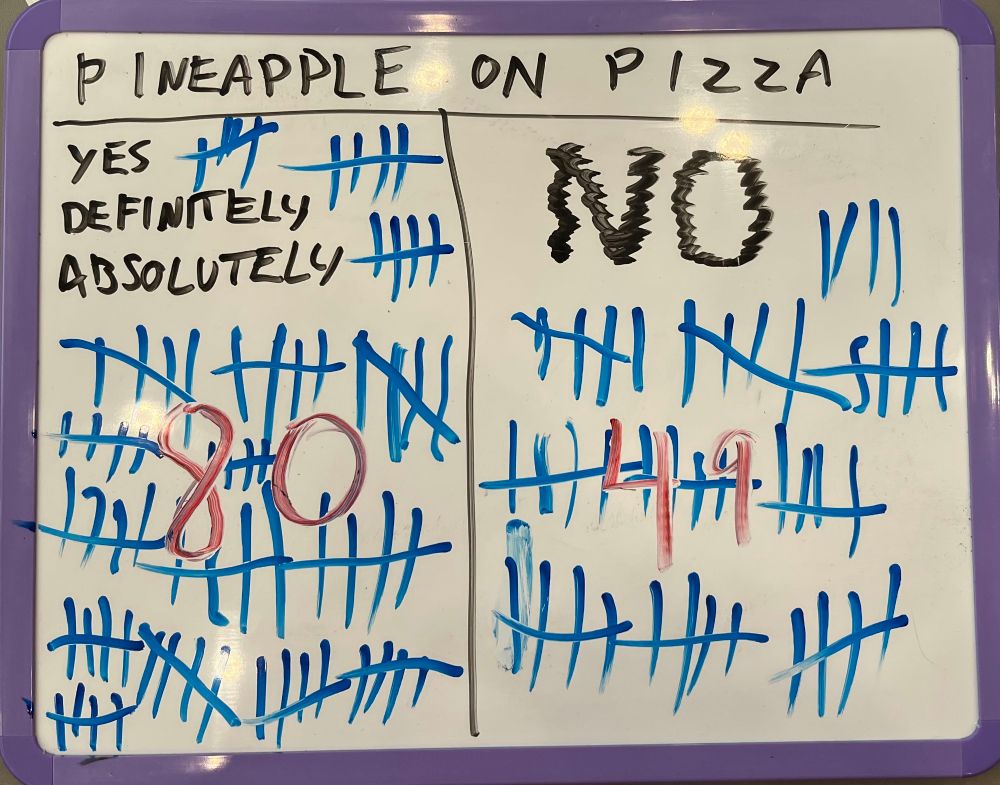 PINEAPPLE ON PIZZA
YES
DEFINITELY
ABSOLUTELY
80
NO
49